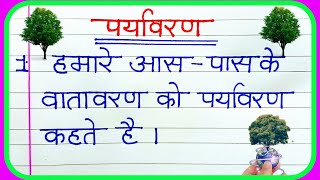 पर्यावरण
1 हमारे आस-पास के
वातावरण को पर्यावरण
कहते है ।